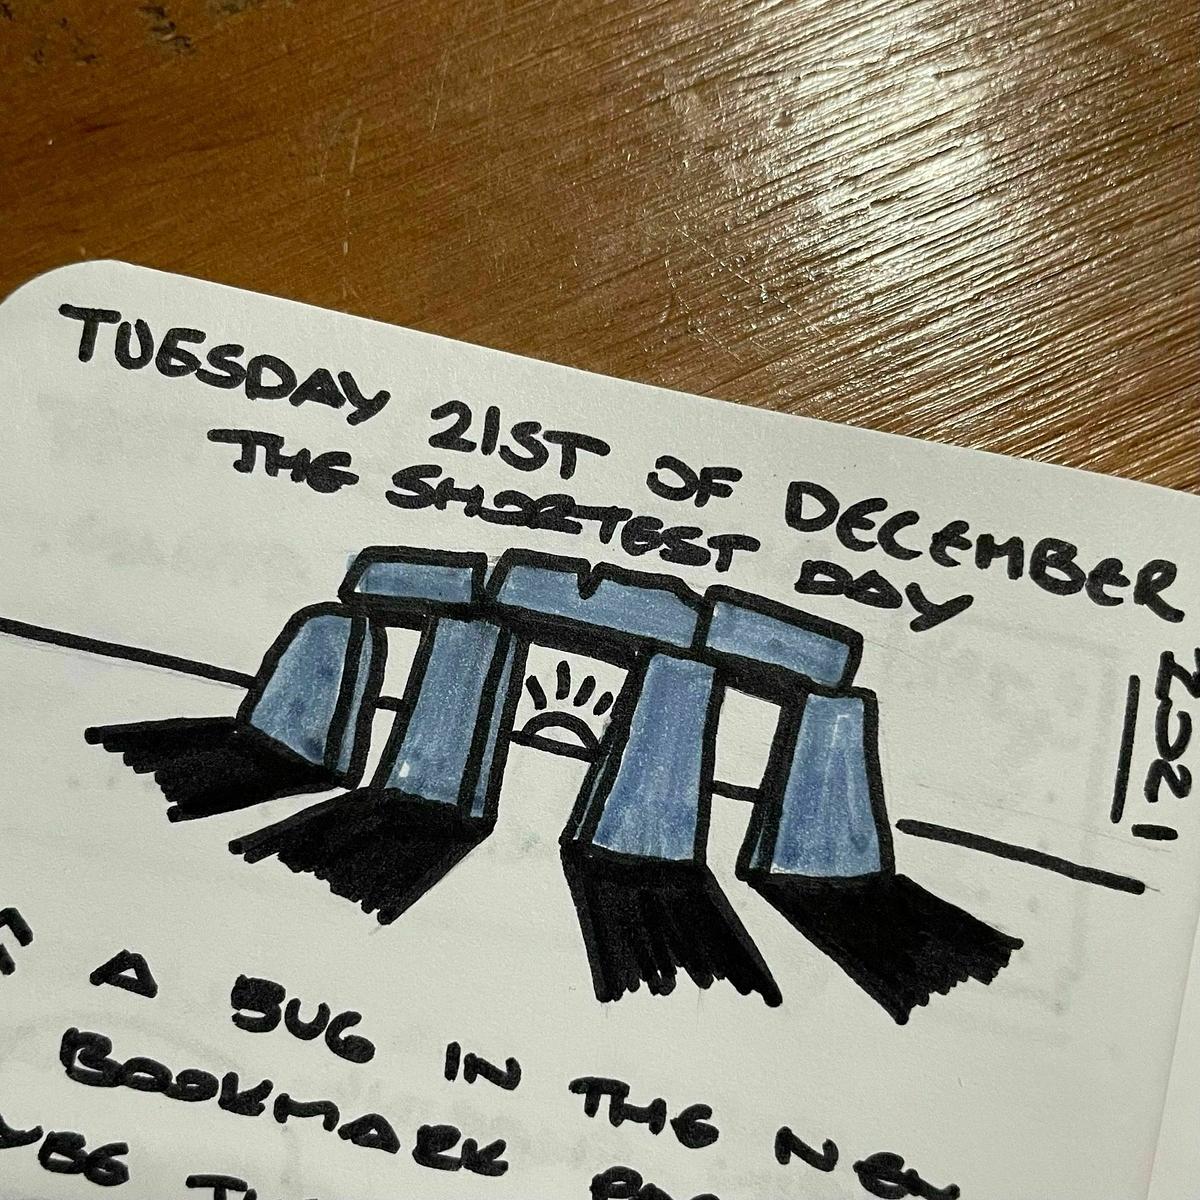 TUESDAY 21ST OF DECEMBER
2021
THE SHORTEST DAY
A BUG IN THE NEW
BOOKMARK